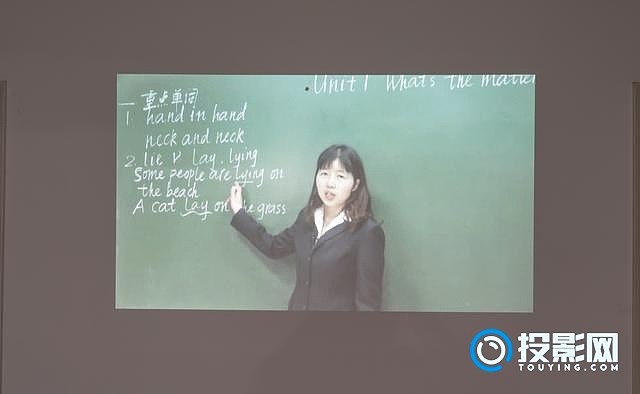 Unit 1 What's the matter
一 重点单词
1 hand in hand
neck and neck
2. lie v lay, lying
Some people are lying on
the beach
A cat lay on the grass
投影网
TOUYING.COM